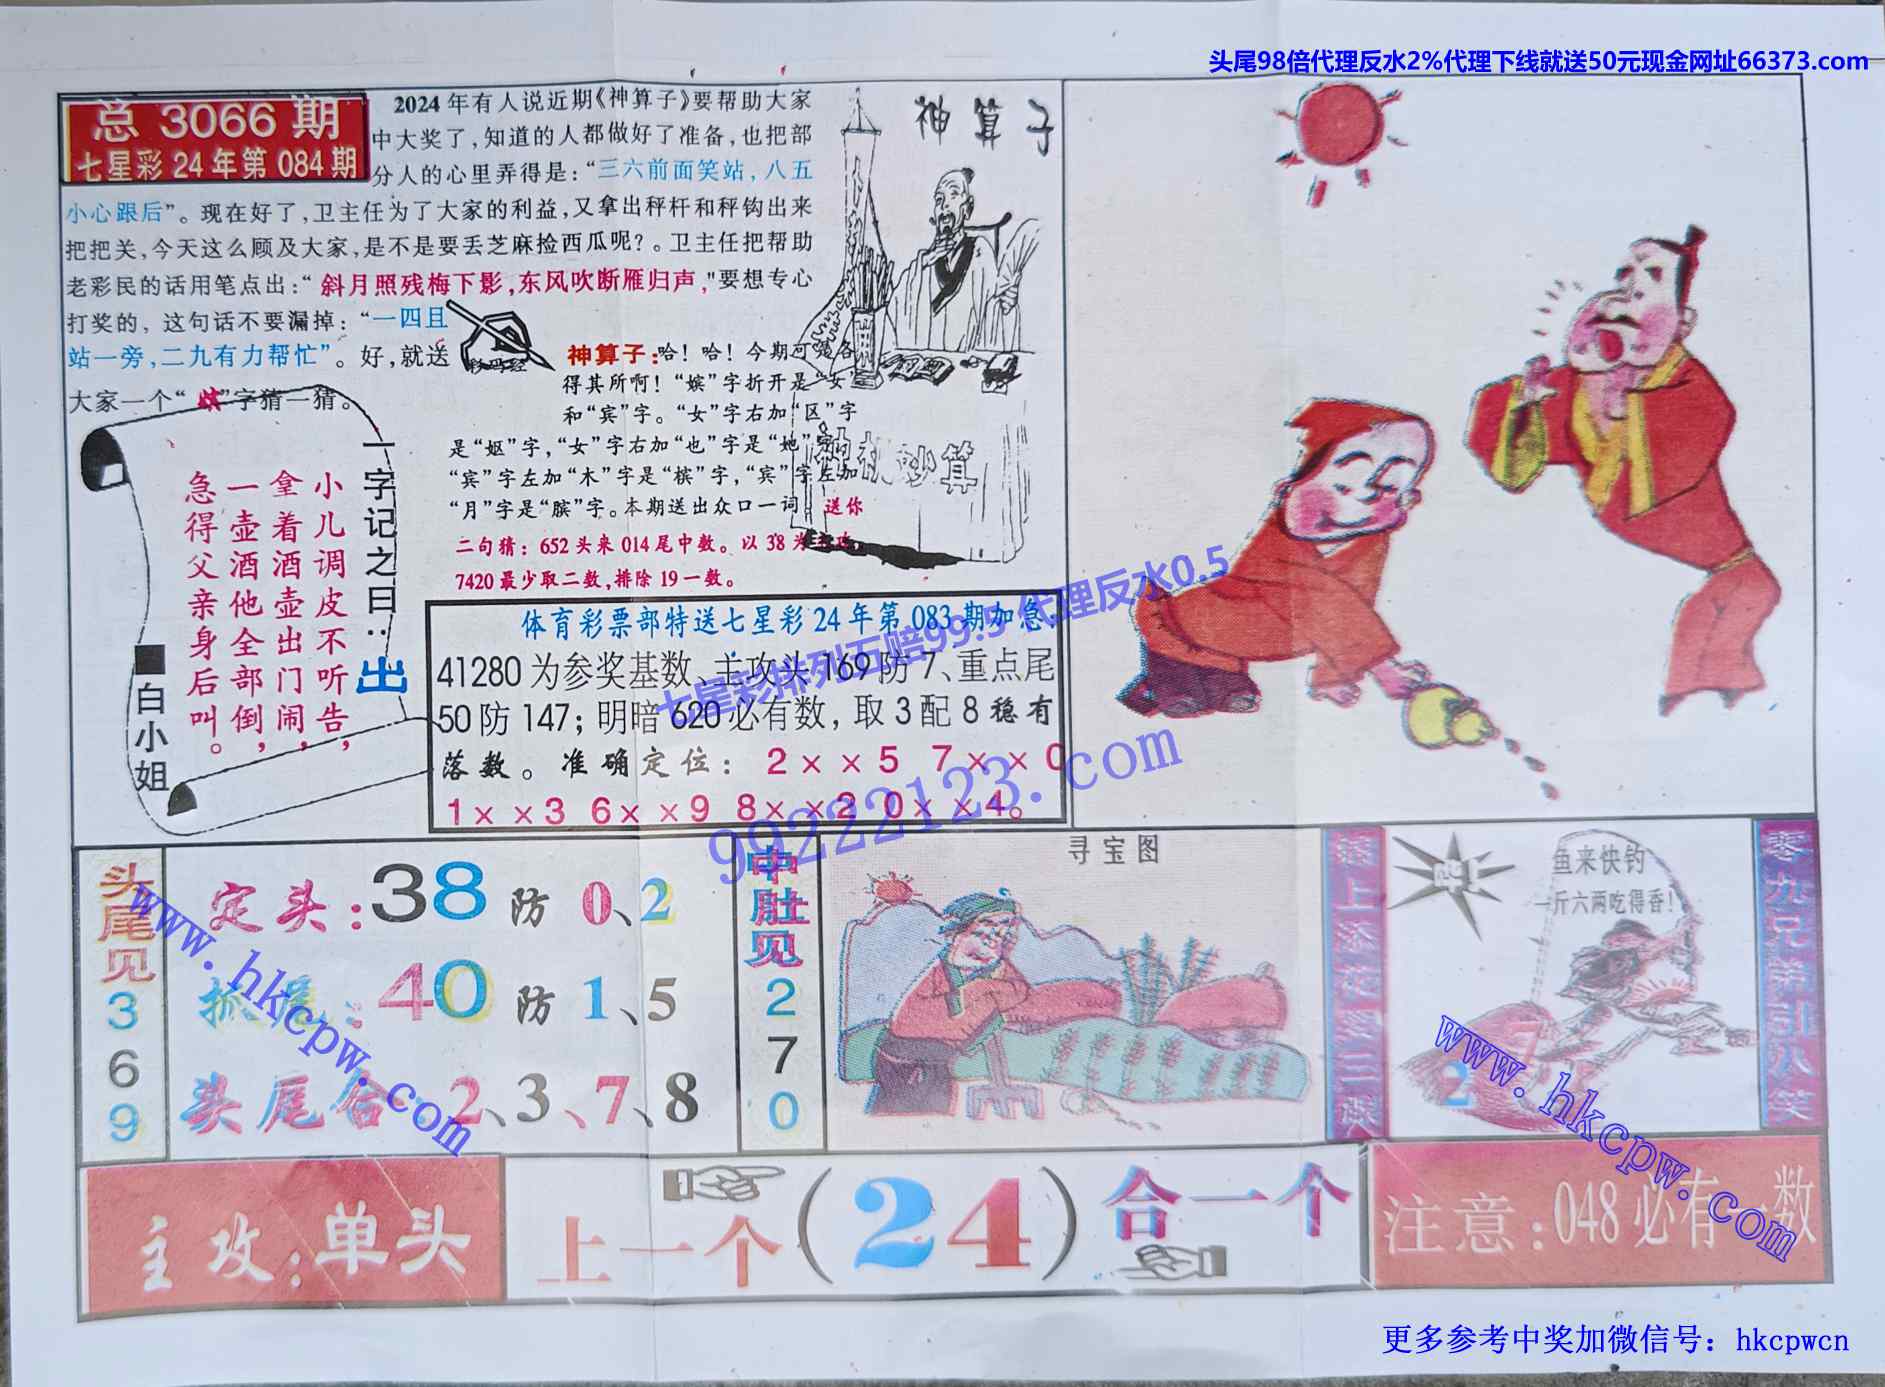 头尾98倍代理反水2%代理下线就送50元现金网址66373.com
总 3066 期
七星彩 24 年第 084 期
2024 年有人说近期《神算子》要帮助大家
中大奖了，知道的人都做好了准备，也把部
分人的心里弄得是：“三六前面笑站，八五
小心跟后”。现在好了，卫主任为了大家的利益，又拿出秤杆和秤钩出来
把把关，今天这么顾及大家，是不是要丢芝麻捡西瓜呢？。卫主任把帮助
老彩民的话用笔点出：“斜月照残梅下影，东风吹断雁归声，"要想专心
打奖的，这句话不要漏掉：“一四且
站一旁，二九有力帮忙”。好，就送
大家一个“嫔”字猜一猜。
彩码经
神算子
神机妙算
神算子：哈！哈！今期可是各
得其所啊！“嫔”字折开是“女”
和“宾”字。“女”字右加“区”字
是“妪”字，“女”字右加“也”字是“她”字
“宾”字左加“木”字是“槟”字，“宾”字左加
“月”字是“膑”字。本期送出众口一词 送你
二句猜：652 头来 014 尾中数。以 38 为主攻，
7420 最少取二数，排除 19 一数。
一字记之曰：出
小儿调皮不听告，
拿着酒壶出门闹，
一壶酒他全部倒，
急得父亲身后叫。
■白小姐
体育彩票部特送七星彩 24 年第 083 期加急：
41280 为参奖基数、主攻头 169 防 7、重点尾
50 防 147；明暗 620 必有数，取 3 配 8 稳有
落数。准确定位：2××5 7××0
1××3 6××9 8××2 0××4。
七星彩排列五赔99.5 代理反水0.5
99222123.com
头尾见
3
6
9
定头：38 防 0、2
抓尾：40 防 1、5
头尾合：2、3、7、8
中肚见
2
7
0
寻宝图
零九兄弟引八笑
鱼来快钓
一斤六两吃得香！
7
2
www.hkcpw.com
www.hkcpw.com
主攻：单头
上一个（24）合一个
注意：048必有一数
更多参考中奖加微信号：hkcpwcn